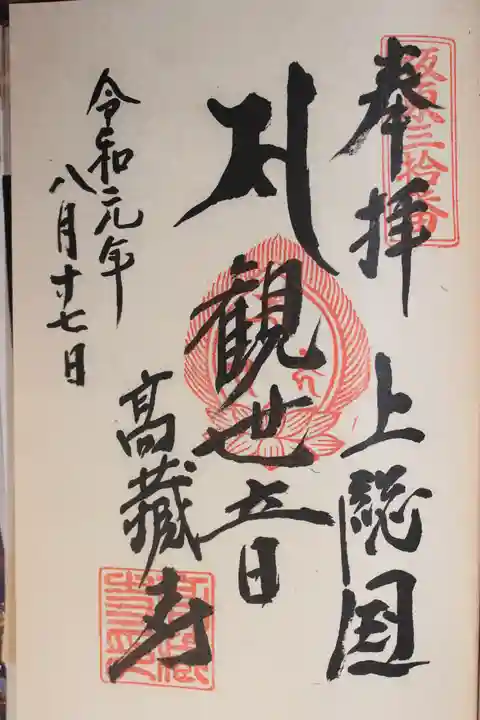 坂東三拾番
奉拝 上総国
観世音
高蔵寺
令和元年
八月十七日